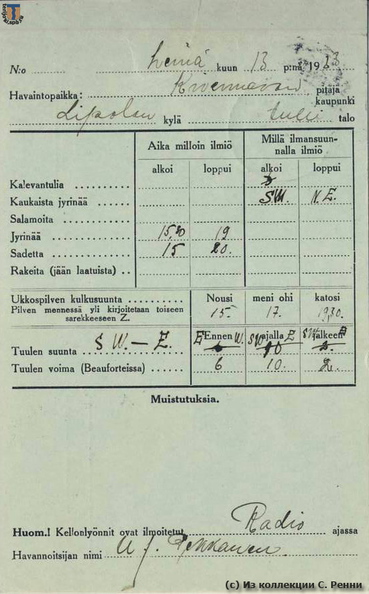 N:o heinä kuun 13 p:nä 1923
Havaintopaikka: pitäjä
kaupunki
Lipolan kylä tulli talo
Aika milloin ilmiö Millä ilmansuunnalla ilmiö
alkoi loppui alkoi loppui
Kalevantulia
Kaukaista jyrinää SW. N.E.
Salamoita
Jyrinää 15,20 19
Sadetta 15 20.
Rakeita (jään laatuista)
Ukkospilven kulkusuunta Nousi meni ohi katosi
Pilven mennessä yli kirjoitetaan toiseen sarekkeeseen Z. 15. 17. 1930.
SW.—Z. Ennen ajalla Jälkeen
Tuulen suunta
Tuulen voima (Beauforteissa) 6 10. 2.
Muistutuksia.
Huom.! Kellonlyönnit ovat ilmoitetut Radio ajassa
Havannoitsijan nimi A. J. Pekkanen.
(c) Из коллекции С. Ренни